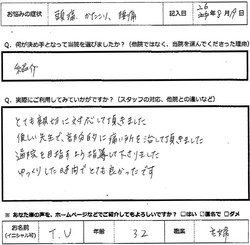 お悩みの症状 頭痛、かたこり、腰痛 記入日
Q. 何が決め手となって当院を選びましたか？（他院ではなく、当院を選んでくださった理由）
紹介
Q. 実際にご利用してみていかがですか？（スタッフの対応、他院との違いなど）
とても親切に対応して頂きました
優しい先生で、専門的に痛い所を治して頂きました
通院を目指すよう指導して下さりました
ゆっくりした時間でとても良かったです
※ あなた様の声を、ホームページなどでご紹介してもよろしいですか？ □はい □匿名で □ダメ
お名前（イニシャル可） T.U 年齢 32 職業 主婦